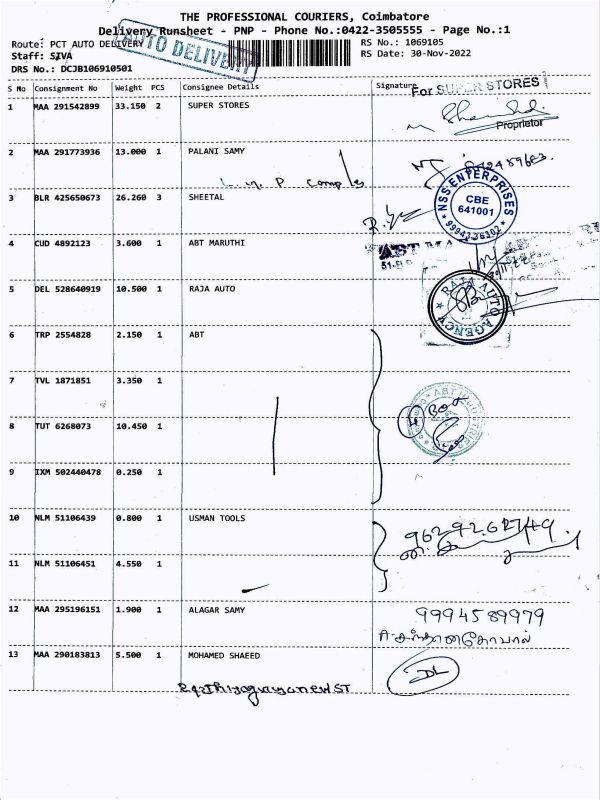 THE PROFESSIONAL COURIERS, Coimbatore
Delivery Runsheet - PNP - Phone No.:0422-3505555 - Page No.:1
Route: PCT AUTO DELIVERY
AUTO DELIVERY
RS No.: 1069105
Staff: SIVA
RS Date: 30-Nov-2022
DRS No.: DCJB106910501
S No Consignment No Weight PCS Consignee Details Signature
For SUPER STORES
1 MAA 291542899 33.150 2 SUPER STORES
Proprietor
2 MAA 291773936 13.000 1 PALANI SAMY
3 BLR 425650673 26.260 3 SHEETAL
NSS ENTERPRISES
CBE
641001
4 CUD 4892123 3.600 1 ABT MARUTHI
5 DEL 528640919 10.500 1 RAJA AUTO
RAJA AUTO AGENCY
6 TRP 2554828 2.150 1 ABT
7 TVL 1871851 3.350 1
8 TUT 6268073 10.450 1
4 Box
9 IXM 502440478 0.250 1
10 NLM 51106439 0.800 1 USMAN TOOLS
9629262749
11 NLM 51106451 4.550 1
12 MAA 295196151 1.900 1 ALAGAR SAMY
9994589979
13 MAA 290183813 5.500 1 MOHAMED SHAEED